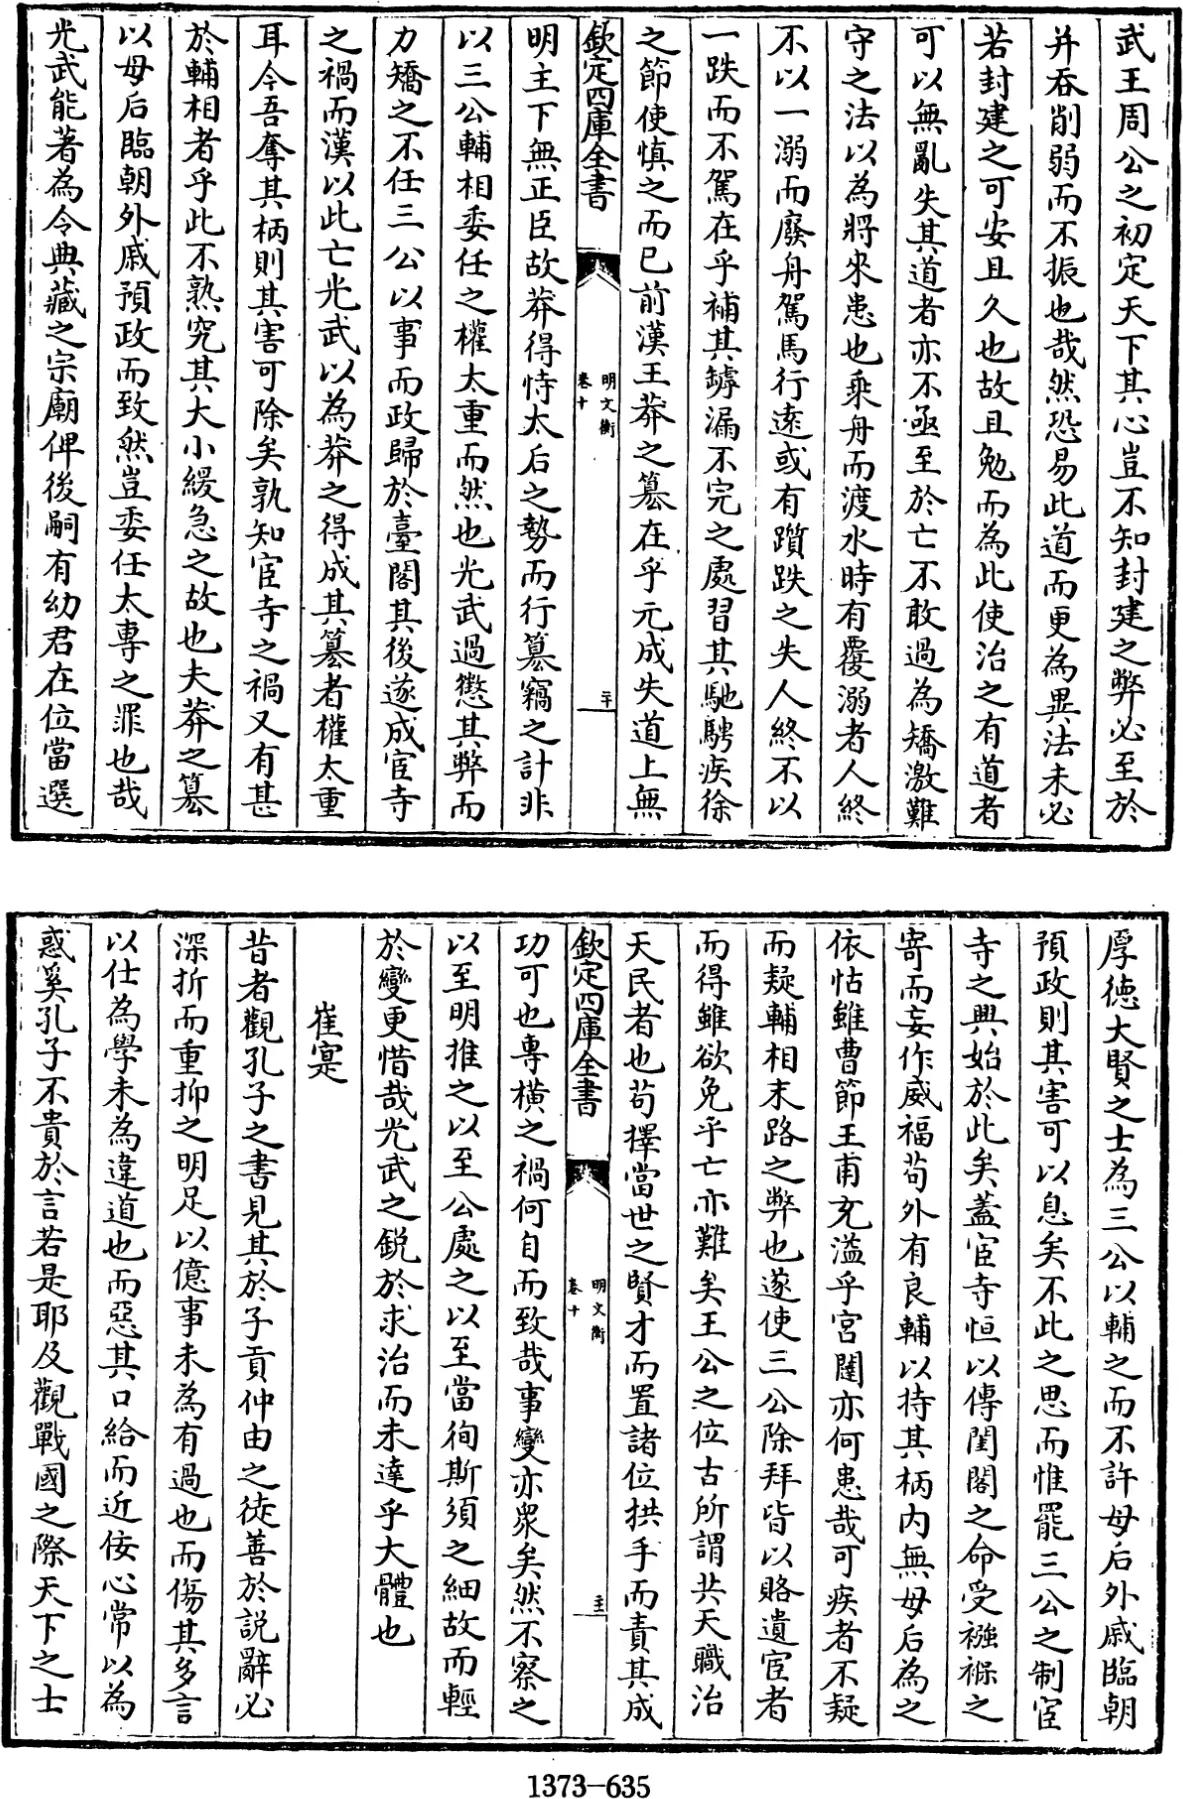 武王周公之初定天下其心豈不知封建之弊必至於
并吞削弱而不振也哉然恐易此道而更為異法未必
若封建之可安且久也故且勉而為此使治之有道者
可以無亂失其道者亦不亟至於亡不敢過為矯激難
守之法以為將來患也乘舟而渡水時有覆溺者人終
不以一溺而廢舟駕馬行遠或有躓跌之失人終不以
一跌而不駕在乎補其罅漏不完之處習其馳騁疾徐
之節使慎之而已前漢王莽之篡在乎元成失道上無
欽定四庫全書
明文衡
卷十
二十
明主下無正臣故莽得恃太后之勢而行篡竊之計非
以三公輔相委任之權太重而然也光武過懲其弊而
力矯之不任三公以事而政歸於臺閣其後遂成宦寺
之禍而漢以此亡光武以為莽之得成其篡者權太重
耳今吾奪其柄則其害可除矣孰知宦寺之禍又有甚
於輔相者乎此不熟究其大小緩急之故也夫莽之篡
以母后臨朝外戚預政而致然豈委任太專之罪也哉
光武能著為令典藏之宗廟俾後嗣有幼君在位當選
厚德大賢之士為三公以輔之而不許母后外戚臨朝
預政則其害可以息矣不此之思而惟罷三公之制宦
寺之興始於此矣蓋宦寺恒以傳閨閣之命受襁褓之
寄而妄作威福茍外有良輔以持其柄内無母后為之
依怙雖曹節王甫充溢乎宫闥亦何患哉可疾者不疑
而疑輔相末路之弊也遂使三公除拜皆以賂遺宦者
而得雖欲免乎亡亦難矣王公之位古所謂共天職治
天民者也茍擇當世之賢才而置諸位拱手而責其成
欽定四庫全書
明文衡
卷十
主
功可也專橫之禍何自而致哉事變亦衆矣然不察之
以至明推之以至公處之以至當徇斯須之細故而輕
於變更惜哉光武之鋭於求治而未達乎大體也
崔寔
昔者觀孔子之書見其於子貢仲由之徒善於説辭必
深折而重抑之明足以億事未為有過也而傷其多言
以仕為學未為違道也而惡其口給而近佞心常以為
惑奚孔子不貴於言若是耶及觀戰國之際天下之士
1373-635